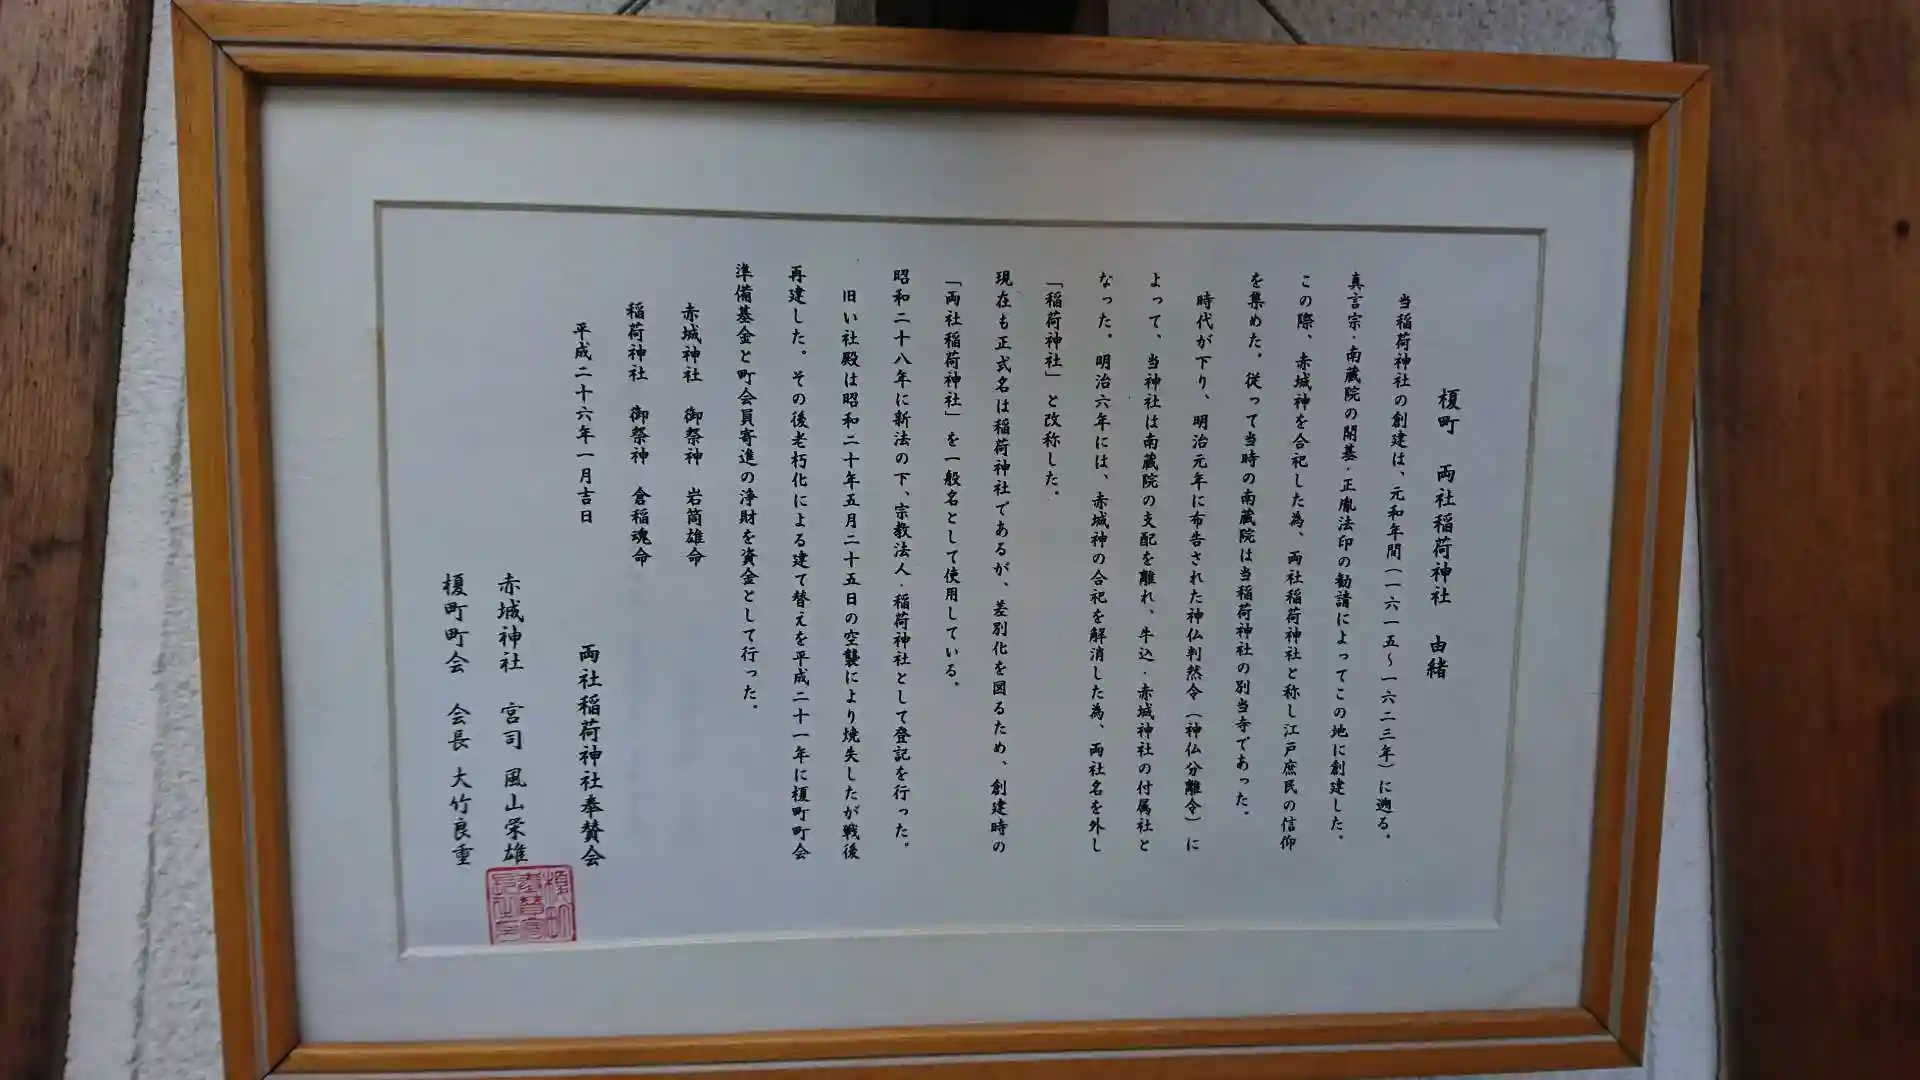 榎町　両社稲荷神社　由緒
当稲荷神社の創建は、元和年間（一六一五～一六二三年）に遡る。
真言宗・南蔵院の開基・正胤法印の勧請によってこの地に創建した。
この際、赤城神を合祀した為、両社稲荷神社と称し江戸庶民の信仰
を集めた。従って当時の南蔵院は当稲荷神社の別当寺であった。
時代が下り、明治元年に布告された神仏判然令（神仏分離令）に
よって、当神社は南蔵院の支配を離れ、牛込・赤城神社の付属社と
なった。明治六年には、赤城神の合祀を解消した為、両社名を外し
「稲荷神社」と改称した。
現在も正式名は稲荷神社であるが、差別化を図るため、創建時の
「両社稲荷神社」を一般名として使用している。
昭和二十八年に新法の下、宗教法人・稲荷神社として登記を行った。
旧い社殿は昭和二十年五月二十五日の空襲により焼失したが戦後
再建した。その後老朽化による建て替えを平成二十一年に榎町町会
準備基金と町会員寄進の浄財を資金として行った。
赤城神社　御祭神　岩筒雄命
稲荷神社　御祭神　倉稲魂命
平成二十六年一月吉日
両社稲荷神社奉賛会
赤城神社　宮司　風山栄雄
榎町町会　会長　大竹良重